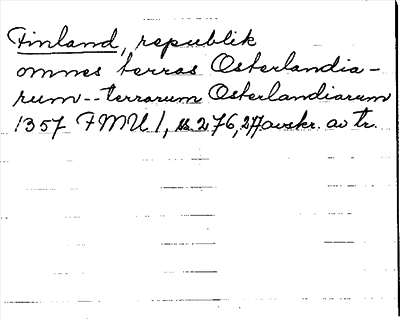 Finland, republik
omnes terras Osterlandia-
rum -- terrarum Osterlandiarum
1357 FMU 1, ss. 276, 277 avskr. av tr.